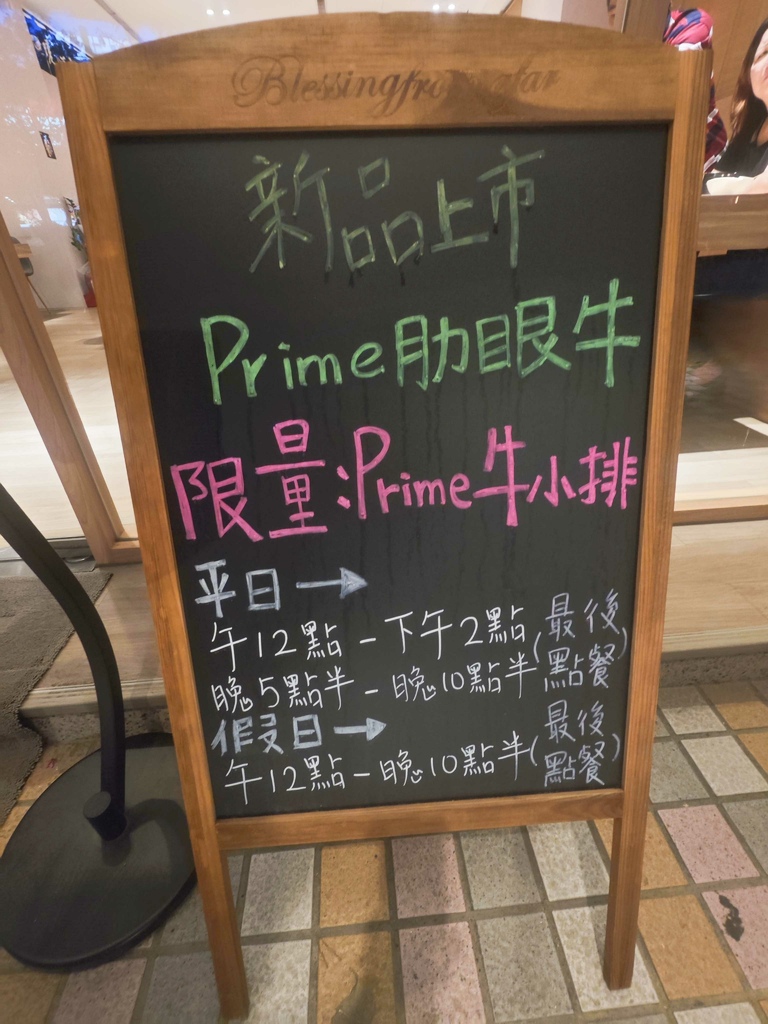 Blessing from afar
新品上市
Prime肋眼牛
限量:Prime牛小排
平日→
午12點-下午2點
晚5點半-晚10點半(最後點餐)
假日→
午12點-晚10點半(最後點餐)